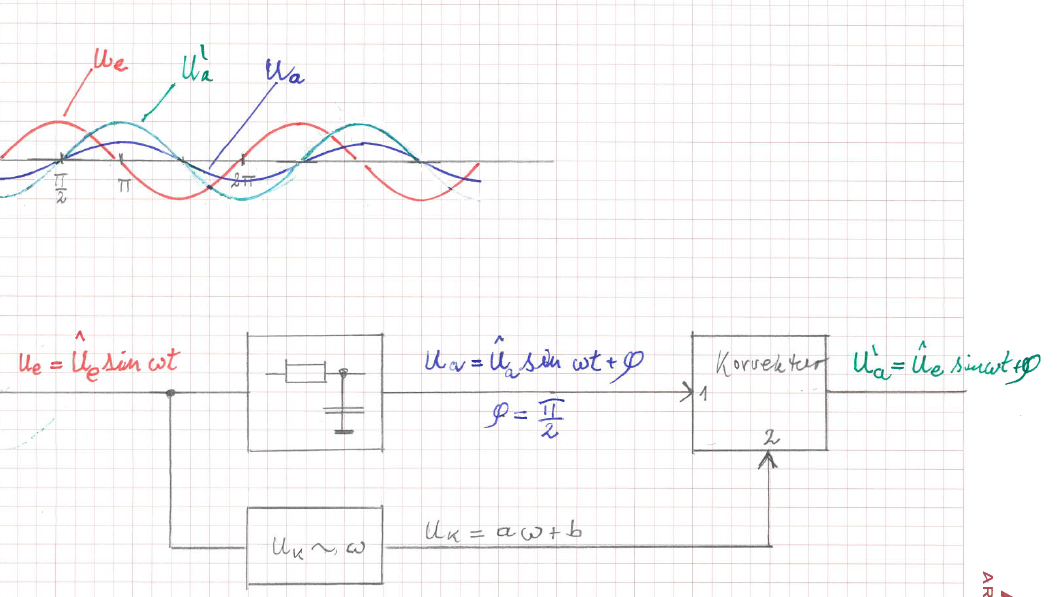 Ue Ua' Ua
π/2 π 2π
Ue = Ûe sin ωt
Ua = Ûa sin ωt + φ
φ = π/2
Korrektur
1
2
Ua' = Ûe sin ωt + φ
UK ~ ω
UK = aω + b
AR